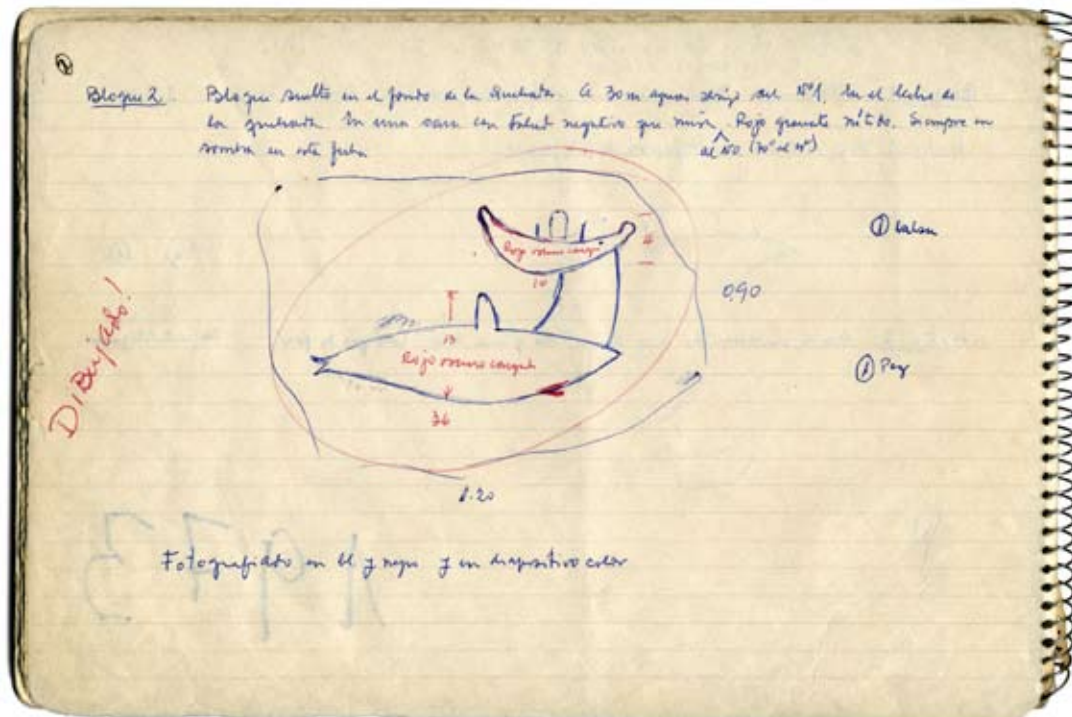 2
Bloque 2. Bloque suelto en el fondo de la Quebrada. A 30 m aguas abajo del Nº1, en el lecho de
la quebrada. En una cara con talud negativo que mira Rojo granate nítido. Siempre en
al NO.
sombra en esta fecha
① balsa
Rojo oscuro
4
10
0.90
DIBUJADO!
13
Rojo oscuro
① Pez
36
1.20
Fotografiado en bl y negro y en diapositivo color